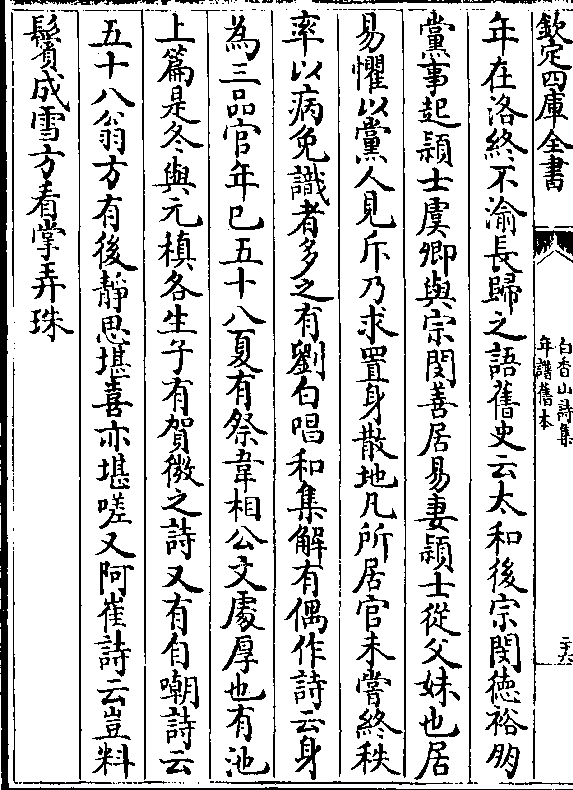 欽定四庫全書
白香山詩集
年譜舊本
年在洛終不渝長歸之語舊史云太和後宗閔德裕朋
黨事起潁士虞卿與宗閔善居易妻潁士從父妹也居
易懼以黨人見斥乃求置身散地凡所居官未嘗終秩
率以病免識者多之有劉白唱和集解有偶作詩云身
為三品官年已五十八夏有祭韋相公文處厚也有池
上篇是冬與元稹各生子有賀微之詩又有自嘲詩云
五十八翁方有後靜思堪喜亦堪嗟又阿崔詩云豈料
鬢成雪方看掌弄珠